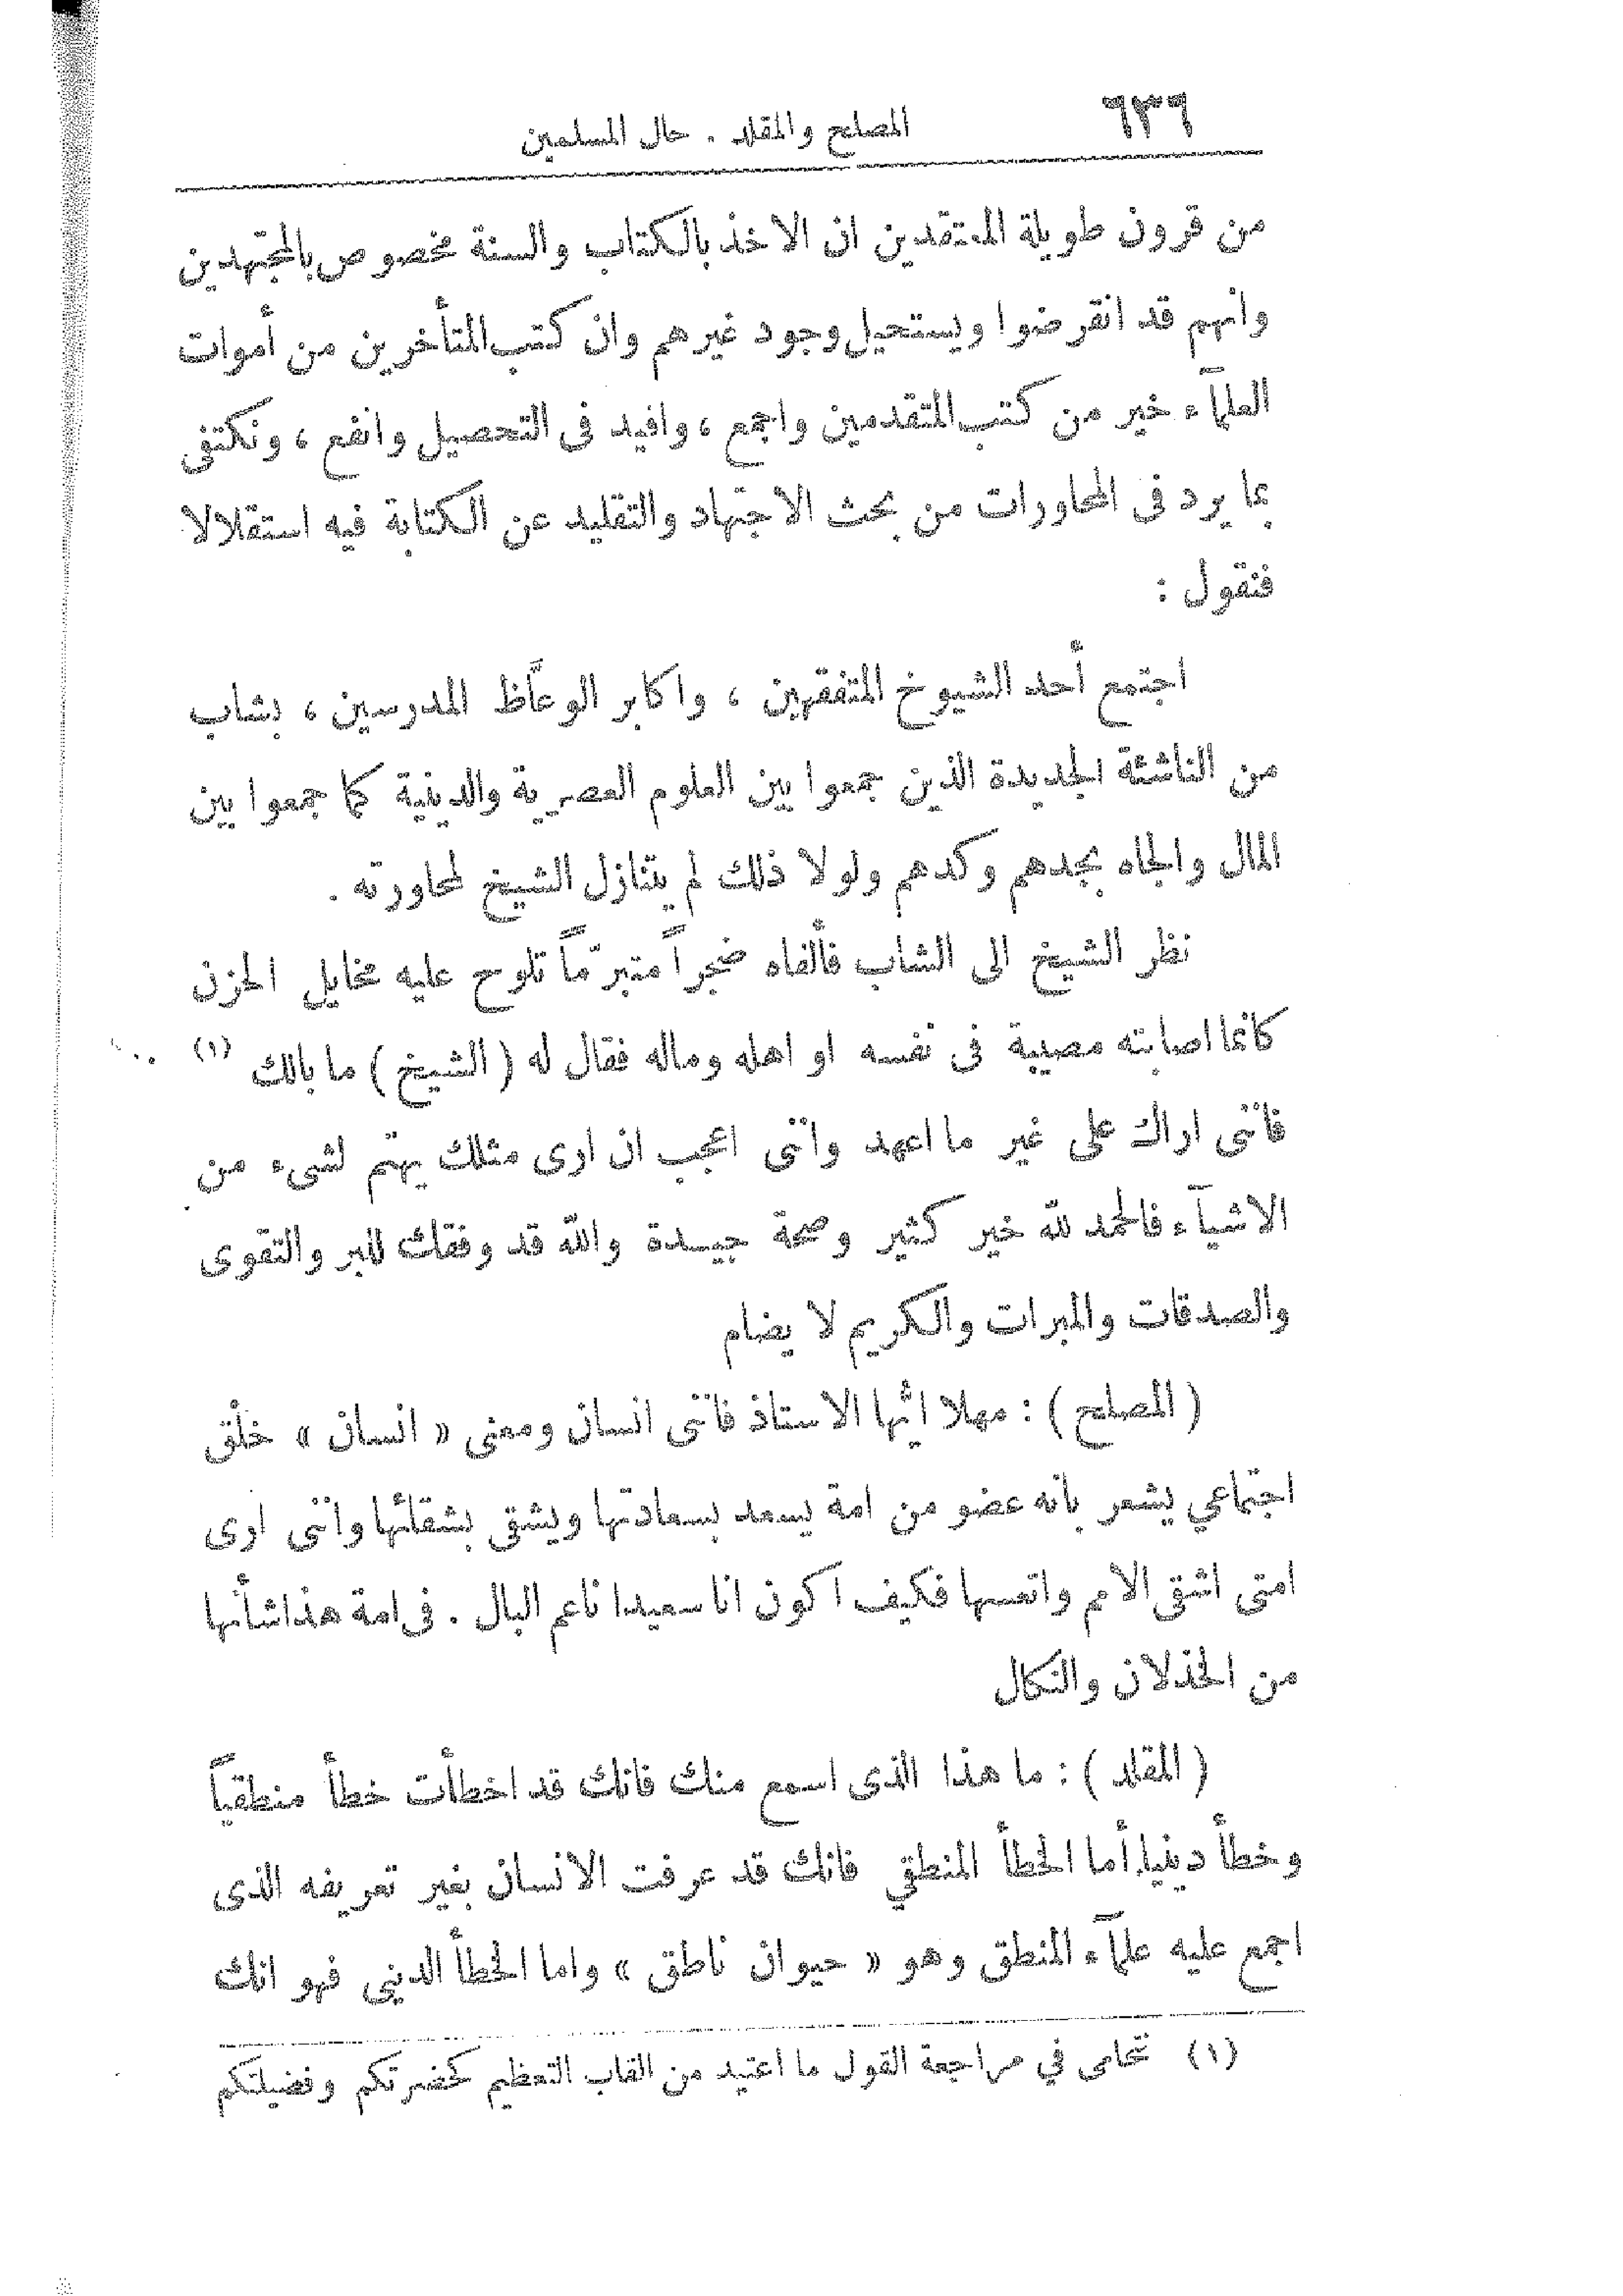 ٦٣٦
المصلح والمقلد . حال المسلمين
من قرون طويلة المعتقدين ان الاخذ بالكتاب والسنة مخصوص بالمجتهدين
وانهم قد انقرضوا ويستحيل وجود غيرهم وان كتب المتأخرين من أموات
العلمآء خير من كتب المتقدمين واجمع ، وافيد فى التحصيل وانفع ، ونكتفى
بما يرد فى المحاورات من بحث الاجتهاد والتقليد عن الكتابة فيه استقلالا
فنقول :
اجتمع أحد الشيوخ المتفقهين ، واكابر الوعَّاظ المدرسين ، بشاب
من الناشئة الجديدة الذين جمعوا بين العلوم العصرية والدينية كما جمعوا بين
المال والجاه بجدهم وكدهم ولولا ذلك لم يتنازل الشيخ لمحاورته .
نظر الشيخ الى الشاب فألفاه ضجراً متبرّماً تلوح عليه مخايل الحزن
كانما اصابته مصيبة فى نفسه او اهله وماله فقال له ( الشيخ ) ما بالك (١)
فاننى اراك على غير ما اعهد واننى اعجب ان ارى مثلك يهتم لشىء من
الاشيآء فالحمد لله خير كثير وصحة جيدة والله قد وفقك للبر والتقوى
والصدقات والمبرات والكريم لا يضام
( المصلح ) : مهلا ايُّها الاستاذ فاننى انسان ومعنى « انسان » خلْق
اجتماعي يشعر بانه عضو من امة يسعد بسعادتها ويشقى بشقائها واننى ارى
امتى اشقى الامم واتعسها فكيف اكون انا سعيدا ناعم البال . فى امة هذا شأنها
من الخذلان والنكال
( المقلد ) : ما هذا الذى اسمع منك فانك قد اخطأت خطأ منطقياً
وخطأ دينيا أما الخطأ المنطقي فانك قد عرفت الانسان بغير تعريفه الذى
اجمع عليه علمآء المنطق وهو « حيوان ناطق » واما الخطأ الدينى فهو انك
(١) نتحامى في مراجعة القول ما اعتيد من القاب التعظيم كحضرتكم وفضيلتكم